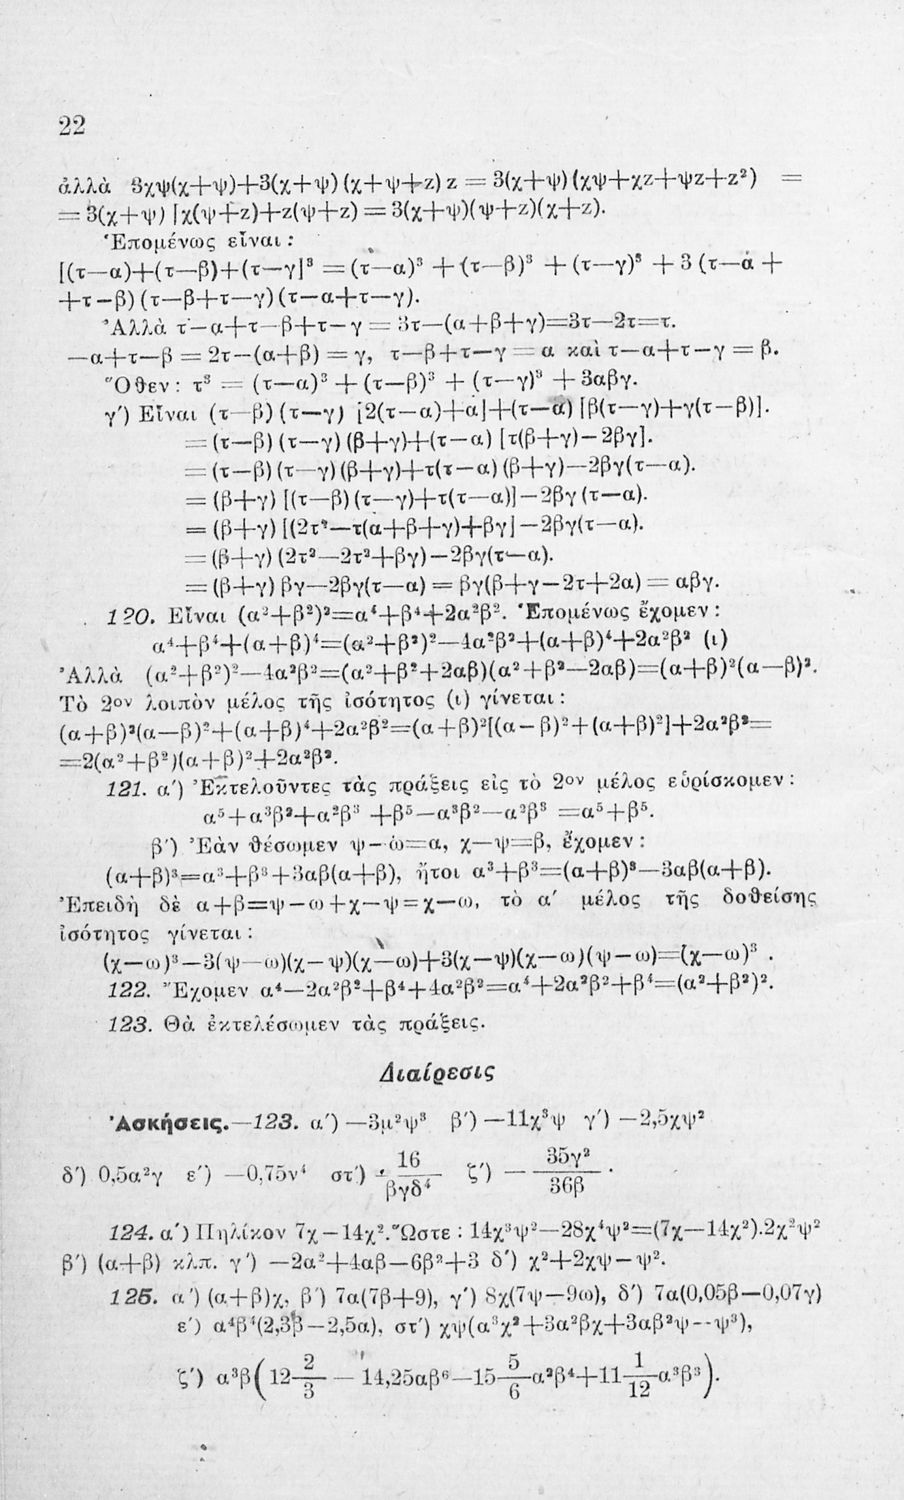 22
ἀλλὰ 3χψ(χ+ψ)+3(χ+ψ)(χ+ψ+z)z = 3(χ+ψ)(χψ+χz+ψz+z²) =
= 3(χ+ψ) [χ(ψ+z)+z(ψ+z) = 3(χ+ψ)(ψ+z)(χ+z).
Ἑπομένως εἶναι :
[(τ—α)+(τ—β)+(τ—γ]³ = (τ—α)³ + (τ—β)³ + (τ—γ)³ + 3 (τ—α +
+τ—β) (τ—β+τ—γ) (τ—α+τ—γ).
Ἀλλὰ τ—α+τ—β+τ—γ = 3τ—(α+β+γ)=3τ—2τ=τ.
—α+τ—β = 2τ—(α+β) = γ, τ—β+τ—γ = α καὶ τ—α+τ—γ = β.
Ὅθεν : τ³ = (τ—α)³ + (τ—β)³ + (τ—γ)³ + 3αβγ.
γ′) Εἶναι (τ—β) (τ—γ) [2(τ—α)+α]+(τ—α) [β(τ—γ)+γ(τ—β)].
= (τ—β) (τ—γ) (β+γ)+(τ—α) [τ(β+γ)—2βγ].
= (τ—β) (τ—γ) (β+γ)+τ(τ—α) (β+γ)—2βγ(τ—α).
= (β+γ) [(τ—β) (τ—γ)+τ(τ—α)]—2βγ (τ—α).
= (β+γ) [(2τ²—τ(α+β+γ)+βγ]—2βγ(τ—α).
= (β+γ) (2τ²—2τ²+βγ)—2βγ(τ—α).
= (β+γ) βγ—2βγ(τ—α) = βγ(β+γ—2τ+2α) = αβγ.
120. Εἶναι (α²+β²)²=α⁴+β⁴+2α²β². Ἑπομένως ἔχομεν :
α⁴+β⁴+(α+β)⁴=(α²+β²)²—4α²β²+(α+β)⁴+2α²β² (ι)
Ἀλλὰ (α²+β²)²—4α²β²=(α²+β²+2αβ)(α²+β²—2αβ)=(α+β)²(α—β)².
Τὸ 2ον λοιπὸν μέλος τῆς ἰσότητος (ι) γίνεται :
(α+β)²(α—β)²+(α+β)⁴+2α²β²=(α+β)²[(α—β)²+(α+β)²]+2α²β²=
=2(α²+β²)(α+β)²+2α²β².
121. α′) Ἐκτελοῦντες τὰς πράξεις εἰς τὸ 2ον μέλος εὑρίσκομεν :
α⁵+α³β²+α²β³ +β⁵—α³β²—α²β³ =α⁵+β⁵.
β′) Ἐὰν θέσωμεν ψ—ω=α, χ—ψ=β, ἔχομεν :
(α+β)³=α³+β³+3αβ(α+β), ἤτοι α³+β³=(α+β)³—3αβ(α+β).
Ἐπειδὴ δὲ α+β=ψ—ω+χ—ψ=χ—ω, τὸ α′ μέλος τῆς δοθείσης
ἰσότητος γίνεται :
(χ—ω)³—3(ψ—ω)(χ—ψ)(χ—ω)+3(χ—ψ)(χ—ω)(ψ—ω)=(χ—ω)³ .
122. Ἔχομεν α⁴—2α²β²+β⁴+4α²β²=α⁴+2α²β²+β⁴=(α²+β²)².
123. Θὰ ἐκτελέσωμεν τὰς πράξεις.
Διαίρεσις
Ἀσκήσεις.—123. α′) —3μ²ψ³ β′) —11χ³ψ γ′) —2,5χψ²
δ′) 0,5α²γ ε′) —0,75ν⁴ στ′) 16/βγδ⁴ ζ′) — 35γ²/36β .
124. α′) Πηλίκον 7χ—14χ². Ὥστε : 14χ³ψ²—28χ⁴ψ²=(7χ—14χ²).2χ²ψ²
β′) (α+β) κλπ. γ′) —2α²+4αβ—6β²+3 δ′) χ²+2χψ—ψ².
125. α′) (α+β)χ, β′) 7α(7β+9), γ′) 8χ(7ψ—9ω), δ′) 7α(0,05β—0,07γ)
ε′) α⁴β⁴(2,3β—2,5α), στ′) χψ(α³χ²+3α²βχ+3αβ²ψ--ψ³),
ζ′) α³β(12 2/3 — 14,25αβ⁶—15 5/6 α²β⁴+11 1/12 α³β³).